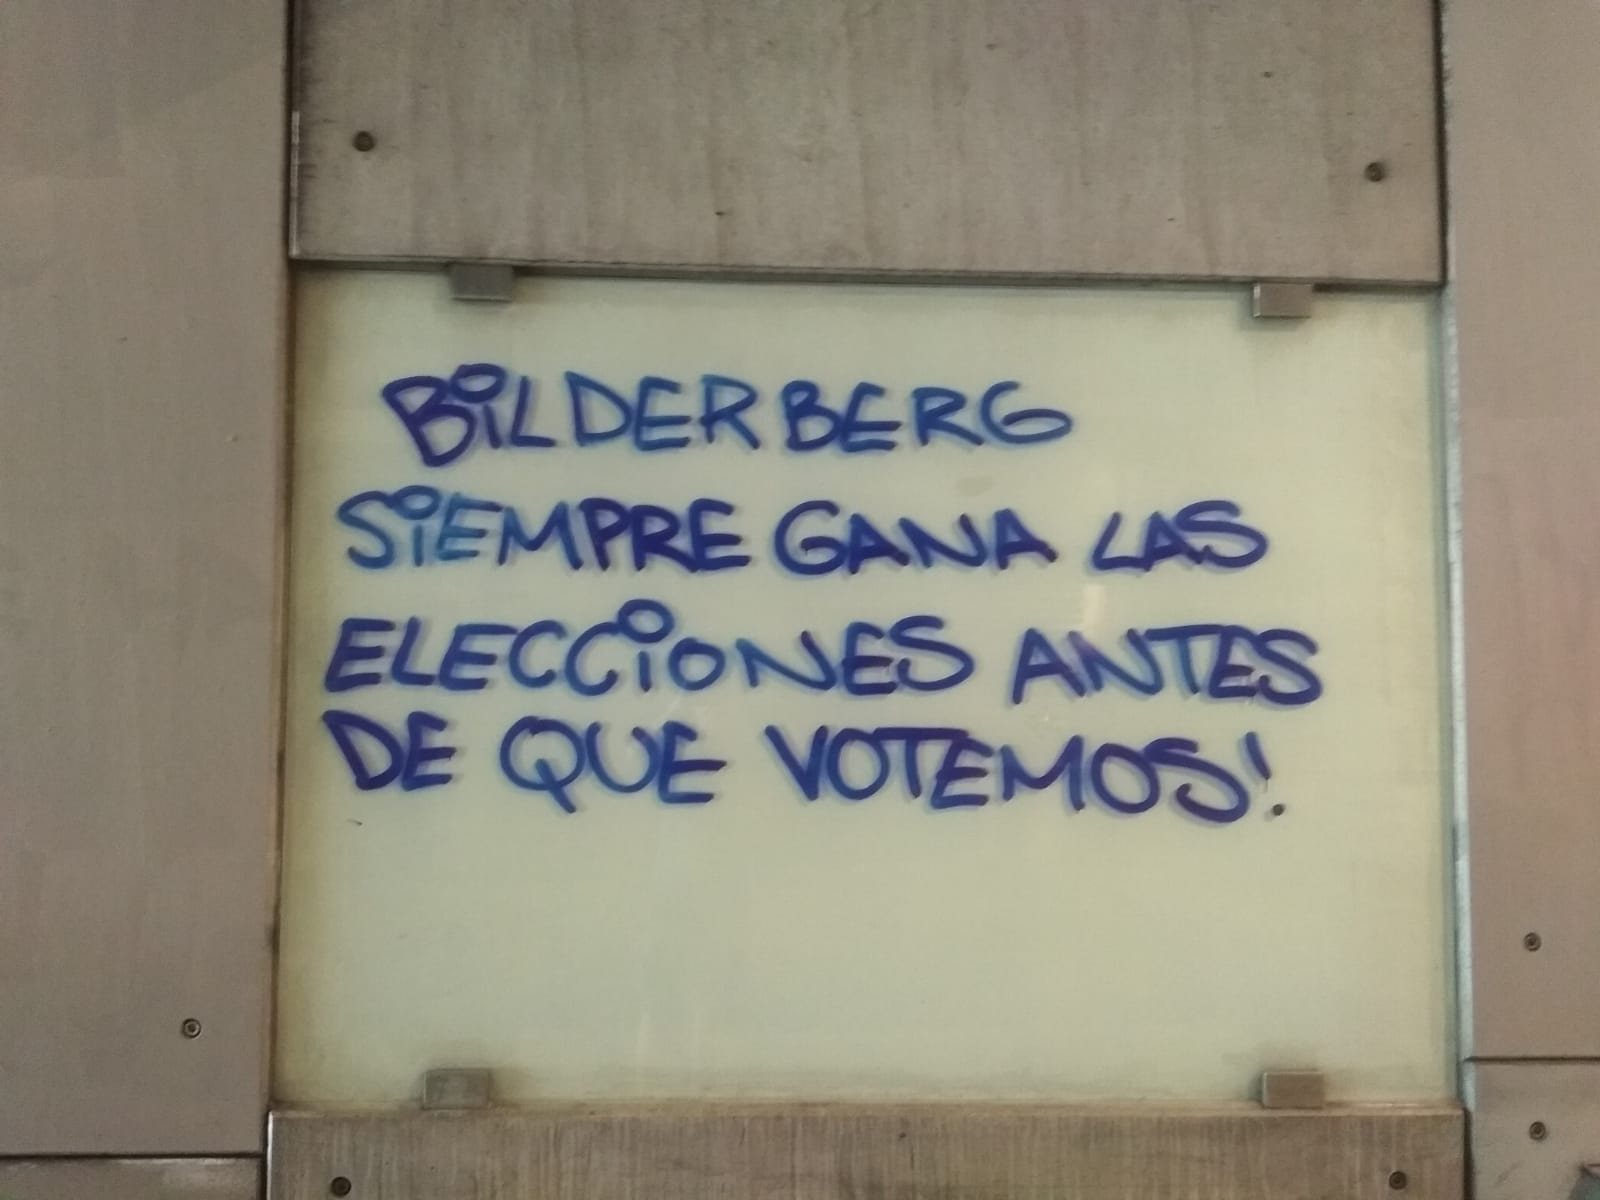 BiLDERBERG
SiEMPRE GANA LAS
ELECCiONES ANTES
DE QUE VOTEMOS!